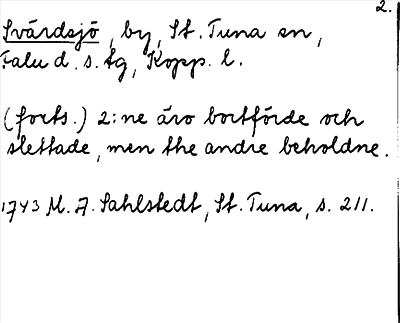 2.
Svärdsjö, by, St. Tuna sn,
Falu d. s. tg, Kopp. l.
(forts.) 2:ne äro bortförde och
slettade, men the andre beholdne.
1743 M. A. Sahlstedt, St. Tuna, s. 211.